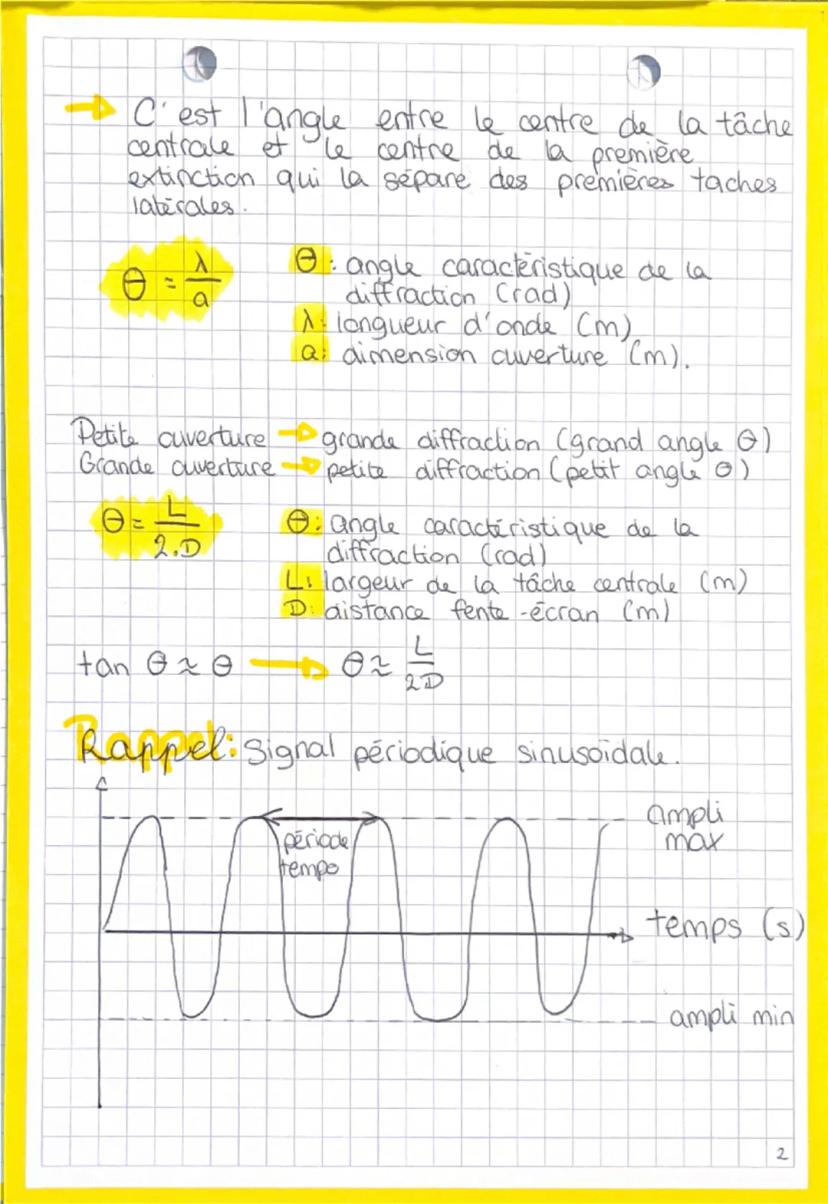 → C'est l'angle entre le centre de la tâche
centrale et le centre de la première
extinction qui la sépare des premières taches
latérales.
θ = λ/a
θ: angle caractéristique de la
diffraction (rad)
λ: longueur d'onde (m)
a: dimension ouverture (m).
Petite ouverture → grande diffraction (grand angle θ)
Grande ouverture → petite diffraction (petit angle θ)
θ = L/2.D
θ: angle caractéristique de la
diffraction (rad)
L: largeur de la tâche centrale (m)
D: distance fente-écran (m)
tan θ ≈ θ → θ ≈ L/2D
Rappel: Signal périodique sinusoïdale.
ampli
max
période
tempo
temps (s)
ampli min
2